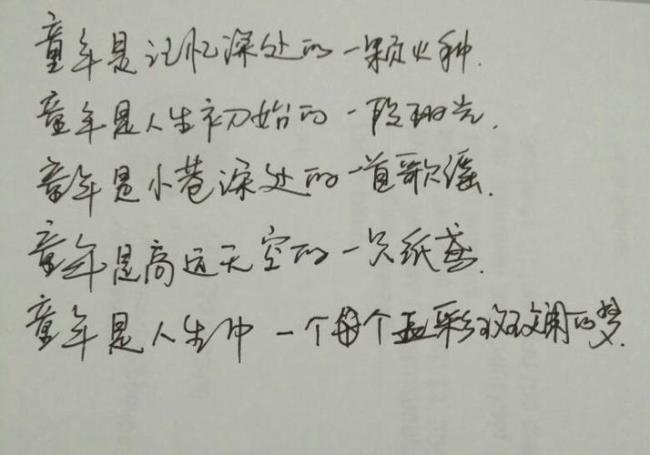 童年是记忆深处的一颗火种.
童年是人生初始的一段时光.
童年是小巷深处的一首歌谣.
童年是高远天空的一只纸鸢.
童年是人生中一个每个五彩斑斓的梦.